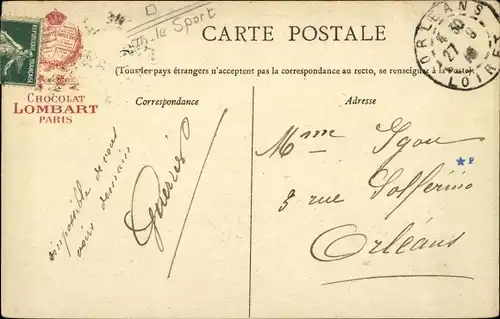 le Sport
CARTE POSTALE
(Tous les pays étrangers n'acceptent pas la correspondance au recto, se renseigner à la Poste)
RÉPUBLIQUE FRANÇAISE
ORLEANS
27
LOIRET
CHOCOLAT
LOMBART
PARIS
Correspondance
Adresse
impossible de vous
voir demain
Mme Igou
3 rue Solferino
Orléans
P.